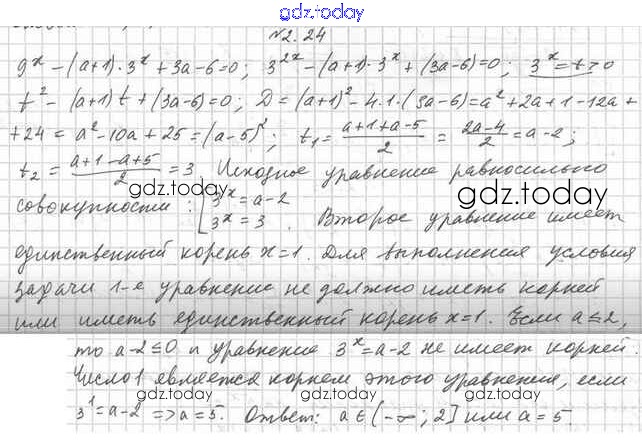 gdz.today
№2.24
9^x - (a+1)·3^x + 3a-6=0; 3^{2x} - (a+1)·3^x + (3a-6)=0; 3^x = t > 0
t² - (a+1)t + (3a-6)=0; D = (a+1)² - 4·1·(3a-6) = a² + 2a + 1 - 12a +
+ 24 = a² - 10a + 25 = (a-5)²; t₁ = (a+1+a-5)/2 = (2a-4)/2 = a-2;
t₂ = (a+1-a+5)/2 = 3 Исходное уравнение равносильно
gdz.today
gdz.today
совокупности: [3^x = a-2
3^x = 3. Второе уравнение имеет
единственный корень x=1. Для выполнения условия
задачи 1-е уравнение не должно иметь корней
или иметь единственный корень x=1. Если a≤2,
то a-2≤0 и уравнение 3^x = a-2 не имеет корней.
Число 1 является корнем этого уравнения, если
3^1 = a-2 => a=5. Ответ: a∈(-∞; 2] или a=5.
gdz.today
gdz.today